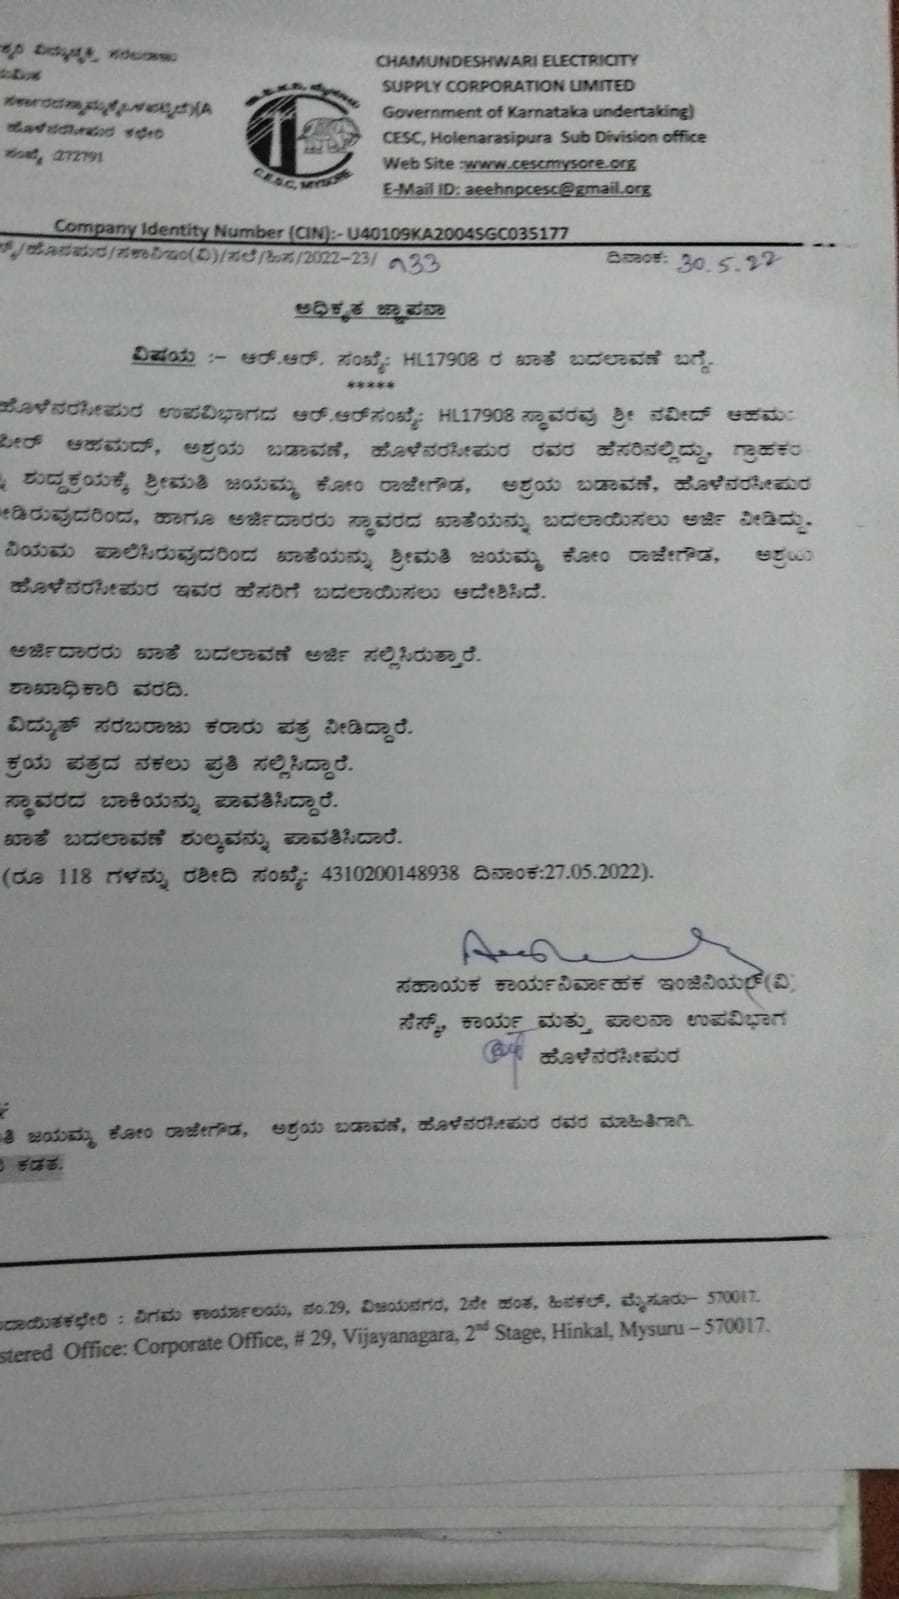 ವಿದ್ಯುಚ್ಛಕ್ತಿ ಸರಬರಾಜು
CHAMUNDESHWARI ELECTRICITY
SUPPLY CORPORATION LIMITED
Government of Karnataka undertaking)
ಹೊಳೆನರಸೀಪುರ ಕಛೇರಿ
CESC, Holenarasipura Sub Division office
ಸಂಖ್ಯೆ :272791
Web Site :www.cescmysore.org
E-Mail ID: aeehnpcesc@gmail.org
C.E.S.C, MYSORE
Company Identity Number (CIN):- U40109KA2004SGC035177
/ಹೊನಪುರ/ಸಕಾನಿಇಂ(ವಿ)/ಸಲೆ/ಹಿಸ/2022-23/ 933 ದಿನಾಂಕ: 30.5.22
ಅಧಿಕೃತ ಜ್ಞಾಪನಾ
ವಿಷಯ :- ಆರ್.ಆರ್. ಸಂಖ್ಯೆ: HL17908 ರ ಖಾತೆ ಬದಲಾವಣೆ ಬಗ್ಗೆ.
*****
ಹೊಳೆನರಸೀಪುರ ಉಪವಿಭಾಗದ ಆರ್.ಆರ್‌ಸಂಖ್ಯೆ: HL17908 ಸ್ಥಾವರವು ಶ್ರೀ ನವೀದ್ ಆಹಮ
ಆಹಮದ್, ಅಶ್ರಯ ಬಡಾವಣೆ, ಹೊಳೆನರಸೀಪುರ ರವರ ಹೆಸರಿನಲ್ಲಿದ್ದು, ಗ್ರಾಹಕರ
ಶುದ್ದಕ್ರಯಕ್ಕೆ ಶ್ರೀಮತಿ ಜಯಮ್ಮ ಕೋಂ ರಾಜೇಗೌಡ, ಅಶ್ರಯ ಬಡಾವಣೆ, ಹೊಳೆನರಸೀಪುರ
ನೀಡಿರುವುದರಿಂದ, ಹಾಗೂ ಅರ್ಜಿದಾರರು ಸ್ಥಾವರದ ಖಾತೆಯನ್ನು ಬದಲಾಯಿಸಲು ಅರ್ಜಿ ನೀಡಿದ್ದು,
ನಿಯಮ ಪಾಲಿಸಿರುವುದರಿಂದ ಖಾತೆಯನ್ನು ಶ್ರೀಮತಿ ಜಯಮ್ಮ ಕೋಂ ರಾಜೇಗೌಡ, ಅಶ್ರಯ
ಹೊಳೆನರಸೀಪುರ ಇವರ ಹೆಸರಿಗೆ ಬದಲಾಯಿಸಲು ಆದೇಶಿಸಿದೆ.
ಅರ್ಜಿದಾರರು ಖಾತೆ ಬದಲಾವಣೆ ಅರ್ಜಿ ಸಲ್ಲಿಸಿರುತ್ತಾರೆ.
ಶಾಖಾಧಿಕಾರಿ ವರದಿ.
ವಿದ್ಯುತ್ ಸರಬರಾಜು ಕರಾರು ಪತ್ರ ನೀಡಿದ್ದಾರೆ.
ಕ್ರಯ ಪತ್ರದ ನಕಲು ಪ್ರತಿ ಸಲ್ಲಿಸಿದ್ದಾರೆ.
ಸ್ಥಾವರದ ಬಾಕಿಯನ್ನು ಪಾವತಿಸಿದ್ದಾರೆ.
ಖಾತೆ ಬದಲಾವಣೆ ಶುಲ್ಕವನ್ನು ಪಾವತಿಸಿದಾರೆ.
(ರೂ 118 ಗಳನ್ನು ರಶೀದಿ ಸಂಖ್ಯೆ: 4310200148938 ದಿನಾಂಕ:27.05.2022).
ಸಹಾಯಕ ಕಾರ್ಯನಿರ್ವಾಹಕ ಇಂಜಿನಿಯರ್(ವಿ)
ಸೆಸ್ಕ್, ಕಾರ್ಯ ಮತ್ತು ಪಾಲನಾ ಉಪವಿಭಾಗ
ಹೊಳೆನರಸೀಪುರ
ಜಯಮ್ಮ ಕೋಂ ರಾಜೇಗೌಡ, ಅಶ್ರಯ ಬಡಾವಣೆ, ಹೊಳೆನರಸೀಪುರ ರವರ ಮಾಹಿತಿಗಾಗಿ.
ಕಡತ.
: ನಿಗಮ ಕಾರ್ಯಾಲಯ, ನಂ.29, ವಿಜಯನಗರ, 2ನೇ ಹಂತ, ಹಿನಕಲ್, ಮೈಸೂರು– 570017.
stered Office: Corporate Office, # 29, Vijayanagara, 2nd Stage, Hinkal, Mysuru – 570017.